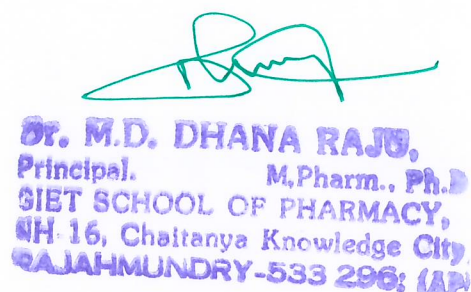 Dr. M.D. DHANA RAJU,
Principal. M.Pharm., Ph.D
GIET SCHOOL OF PHARMACY,
NH-16, Chaitanya Knowledge City
RAJAHMUNDRY-533 296; (AP)